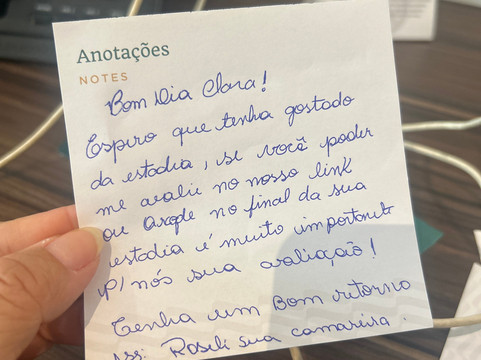 Anotações
NOTES
Bom Dia Clara!
Espero que tenha gostado
da estadia, se você poder
me avalie no nosso link
ou no final da sua
estadia é muito importante
p/ nós sua avaliação!
Tenha um Bom retorno
Ass: Roseli sua camareira.